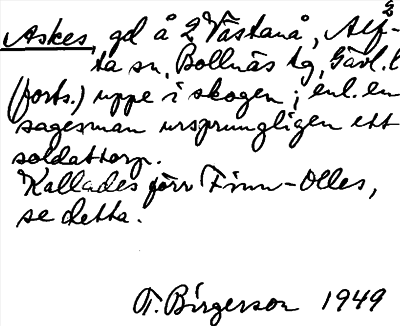 Askes, gd å 2 Västanå, Alf-
ta sn, Bollnäs tg, Gävl.l
(forts.) uppe i skogen; enl. en
sagesman ursprungligen ett
soldattorp.
Kallades förr Finn-Olles,
se detta.
T. Birgerson 1949